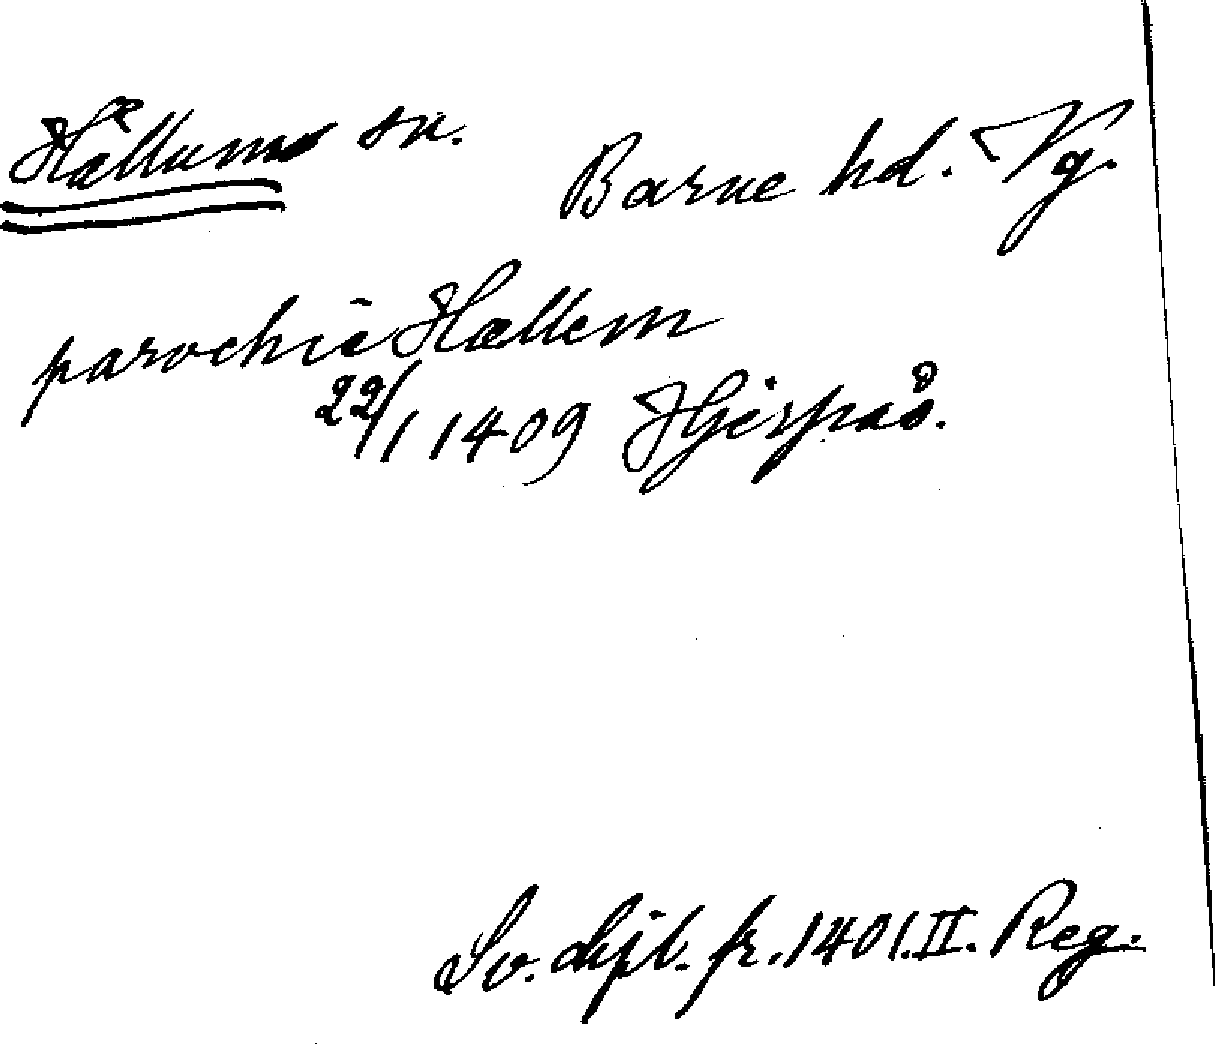 Hällums sn. Barne hd. Vg.
parochiē Hællem
22/1 1409 Hjerpås.
Sv. dipl. fr. 1401. II. Reg.